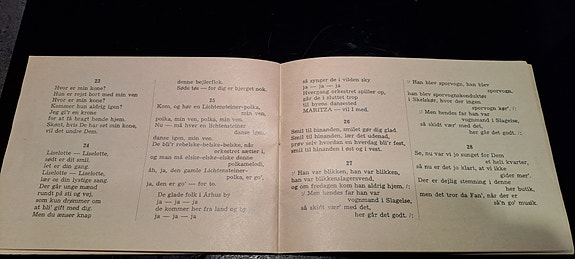 23
Hvor er min kone?
Hun er rejst bort med min ven
Hvor er min kone?
Kommer hun aldrig igen?
Jeg gi'r en krone
for at få bragt bende hjem.
Skønt, hvis De har set min kone,
vil det undre Dem.
24
Liselotte — Liselotte,
sødt er dit smil
let er din gang.
Liselotte — Liselotte,
lær os din lystige sang.
Der går unge mænd
rundt på sti og vej,
som kun drømmer om
at bli' gift med dig.
Men du ænser knap
denne bejlerflok.
Søde tøs — for dig er bjerget nok.
25
Kom, og hør en Lichtensteiner-polka,
min ven,
polka, min ven, polka, min ven.
Nu — må hver en lichtensteiner
danse igen,
danse igen, min ven
De bli'r rebelske-belske-belske, når
orkestret sætter i,
og man må elske-elske-elske denne
polkamelodi,
åh, ja, den gamle Lichtensteiner-
polka, er go',
ja, den er go' — for to.
De glade folk i Århus by
ja — ja — ja
de kommer her fra land og by
ja — ja — ja
så synger de i vilden sky
ja — ja — ja
Hvergang orkestret spiller op,
går de i sluttet trop
til byens dansested
MARITZA — vil I med.
26
Smil til hinanden, smilet gør dig glad
Smil til hinanden, lær det udenad,
prøv selv hvordan en hverdag bli'r fest,
smil til hinanden i øst og i vest.
27
/: Han var blikken, han var blikken,
han var blikkenslagersvend,
og om fredagen kom han aldrig hjem. /:
/: Men hendes far han var
vognmand i Slagelse,
så skidt vær' med det,
her går det godt. /:
/: Han blev sporvogn, han blev
sporvogn,
han blev sporvognskonduktør
i Skelskør, hvor der ingen
sporvogn kør'. /:
/: Men hendes far han var
vognmand i Slagelse,
så skidt vær' med det,
her går det godt. /:
28
Se, nu var vi jo sunget for Dem
et helt kvarter,
så nu er det jo klart, at vi ikke
gider mer'.
Der er dejlig stemning i denne
her butik,
men det tror da Fan', når der er
så'n go' musik.